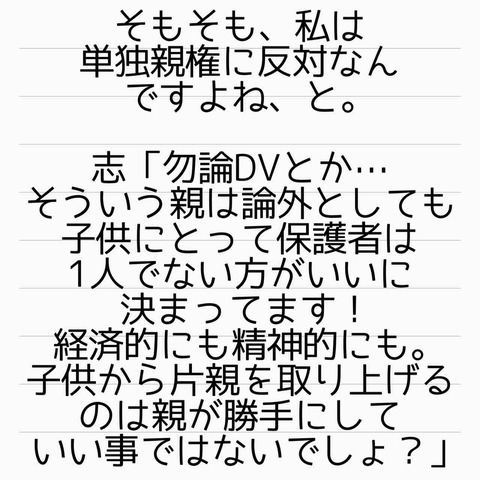 そもそも、私は
単独親権に反対なん
ですよね、と。
志「勿論DVとか…
そういう親は論外としても
子供にとって保護者は
1人でない方がいいに
決まってます！
経済的にも精神的にも。
子供から片親を取り上げる
のは親が勝手にして
いい事ではないでしょ？」